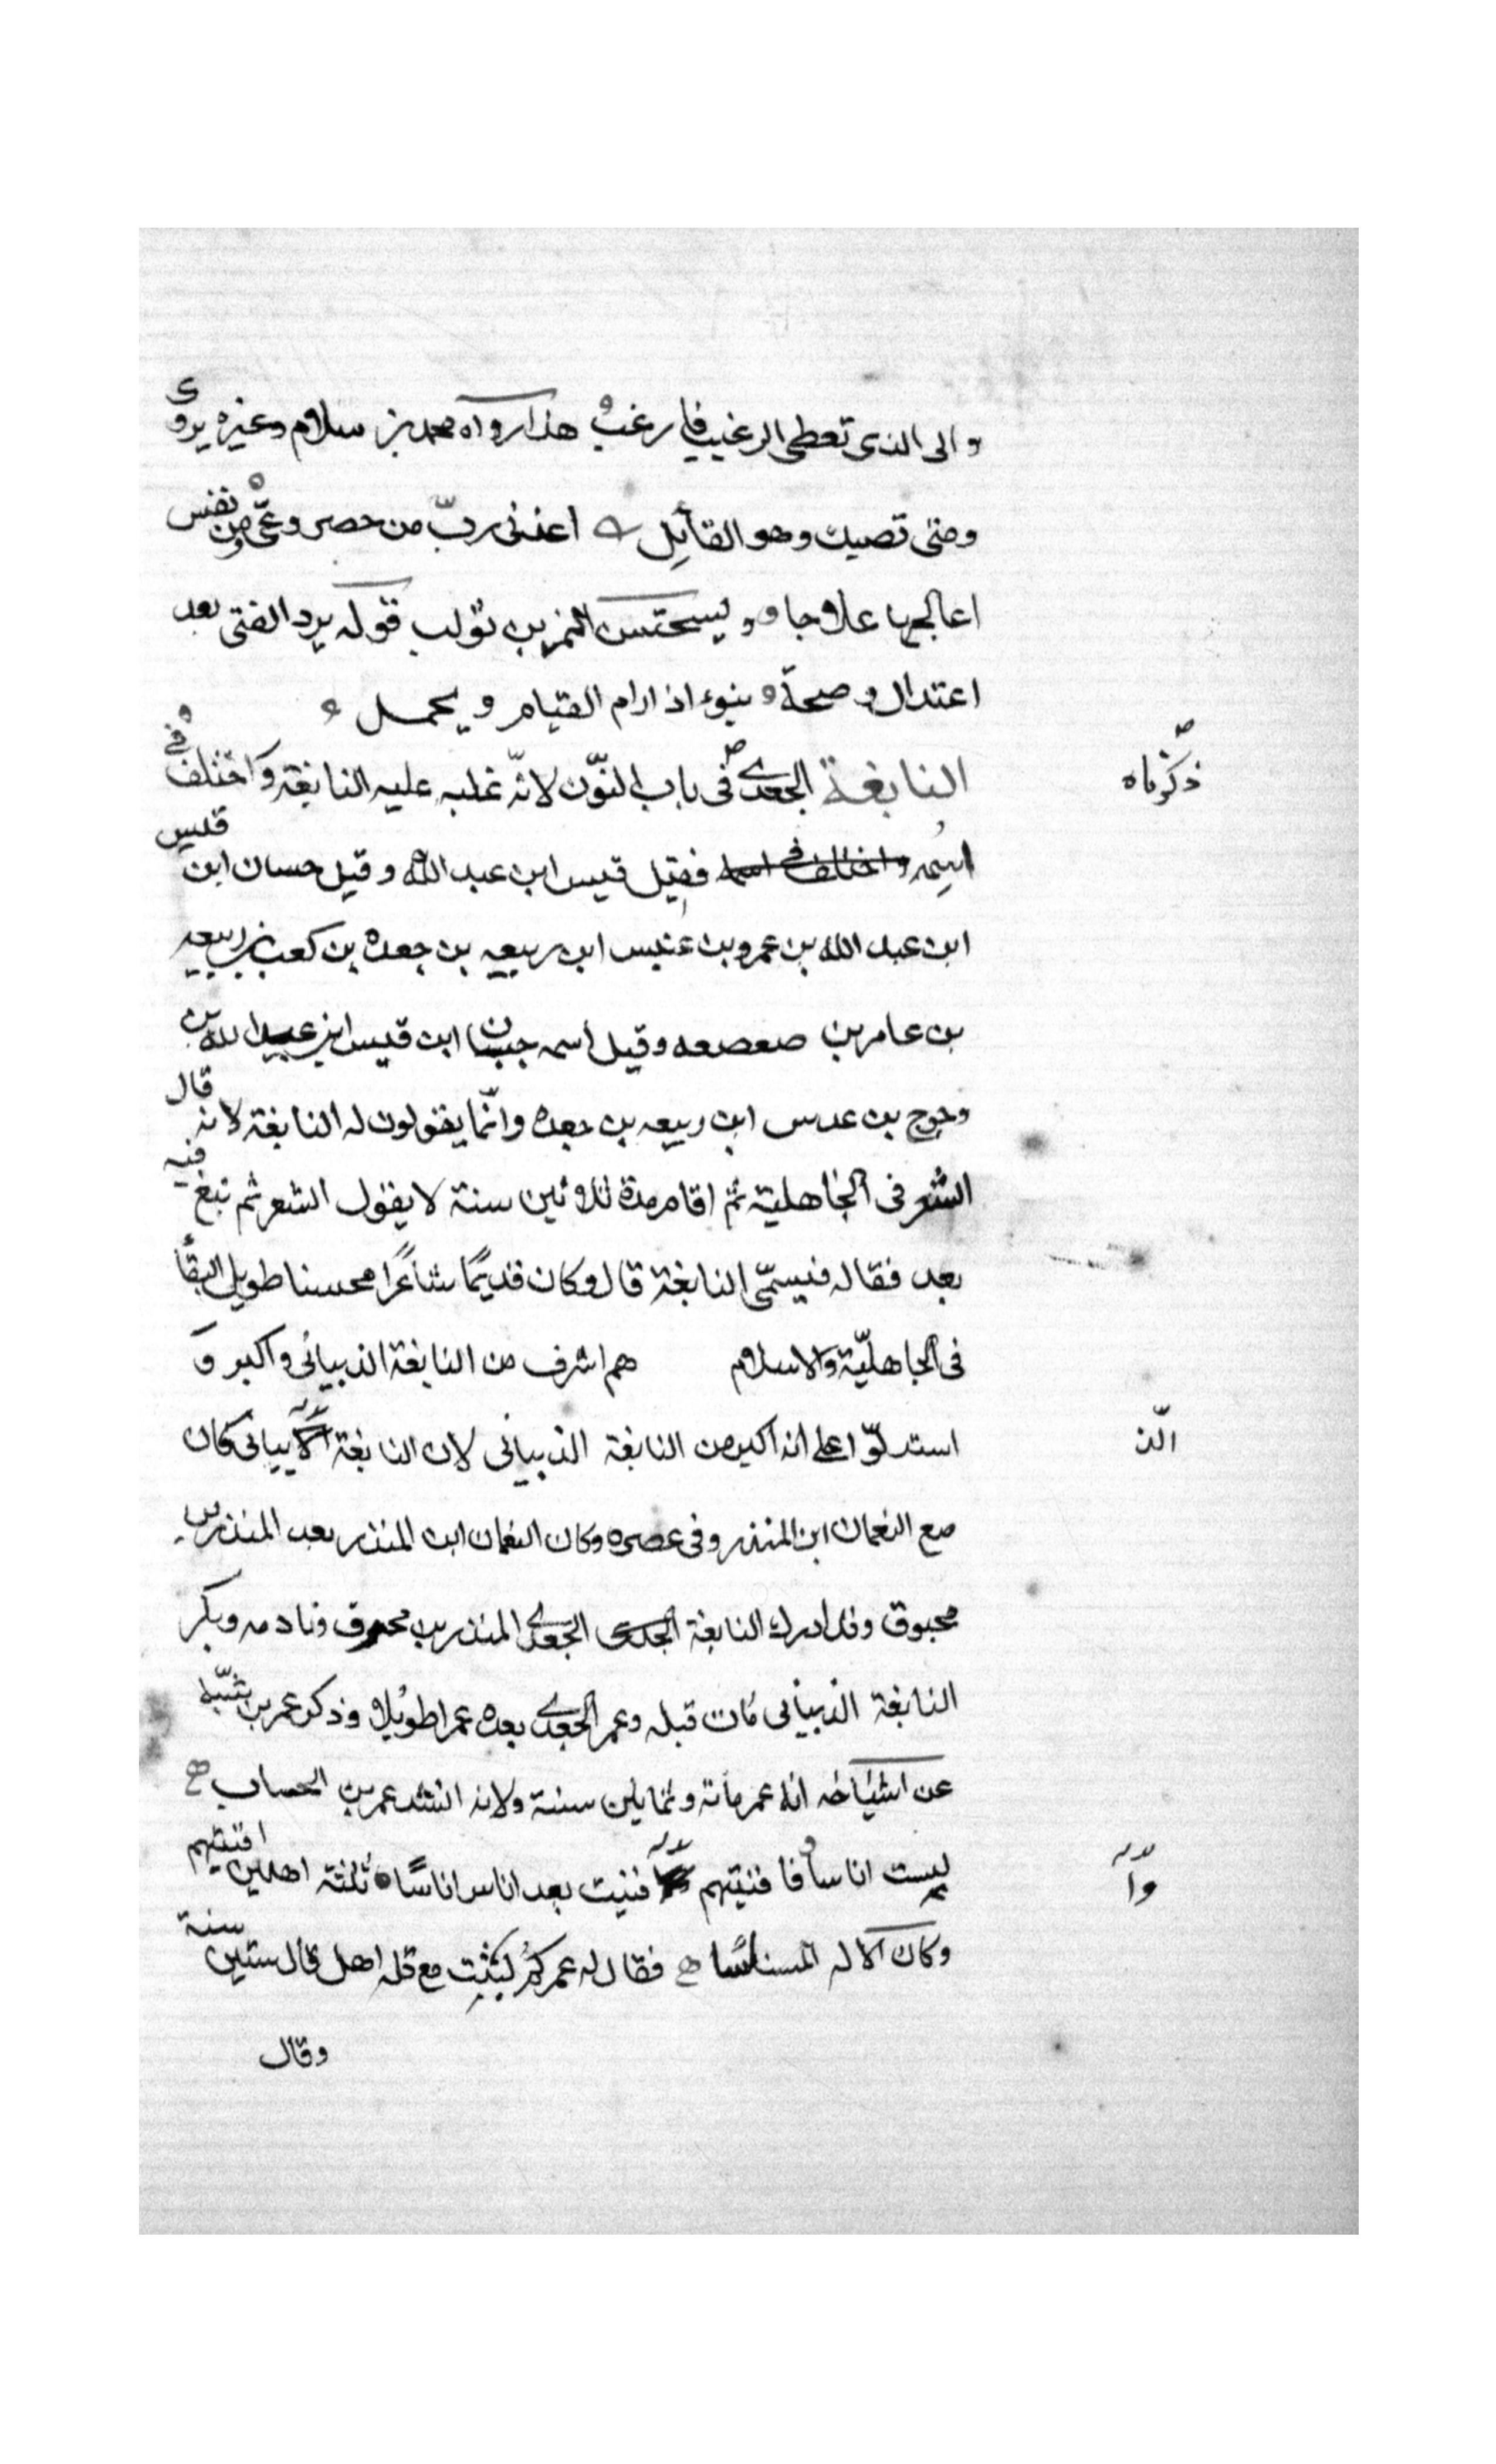 والى الذى تعطى الرغيب فارغب هذا رواه محمد بن سلام وغيره يروى
ومتى تصبك وهو القائل اعذنى رب من حصر وعىّ ومن نفس
اعالجها علاجا ويستحسن للنمر بن تولب قوله يرد الفتى بعد
اعتدال وصحة ينوء اذا رام القيام ويحمل
النابغة الجعدى فى باب النّون لانّه غلبه عليه النابغة واختلف فى
ذكرناه
اسمه واختلف فى اسمه فقيل قيس ابن عبد الله وقيل حسان ابن قيس
ابن عبد الله بن عمرو بن عنبس ابن ربيعه بن جعده بن كعب بن ربيعه
بن عامر بن صعصعه وقيل اسمه حبان ابن قيس ابن عبد الله بن
وحوح بن عدس ابن ربيعه بن جعده وانّما يقولون له النابغة لانه قال
الشعر فى الجاهلية ثمّ اقام مدة ثلاثين سنة لا يقول الشعر ثم نبغ فيه
بعد فقاله فيسمّى النابغة قال وكان قديمًا شاعرًا محسنا طويل البقأ
فى الجاهليّة والاسلام هم اشرف من النابغة الذبيانى واكبر و
استدلّوا على انه اكبر من النابغة الذبيانى لان النابغة كان
الذ
مع النعمان ابن المنذر وفى عصره وكان النعمان ابن المنذر بعد المنذر بن
محبوق وقد ادرك النابغة الجعدى المنذر بن محرق ونادمه وبكر
النابغة الذبيانى مات قبله وعمر الجعدى بعده عمرا طويلا وذكر عمر بن شبّه
عن اشياخه انه عمر مأته وثمانين سنة ولانه انشد عمر بن الخصاب
لبست اناسا فافنيتهم فنيت بعد اناس اناسًا ثلثة اهلين افنيتهم
وأ
وكان الاله المسناسًا فقال له عمر كم لبثت مع قله اهل قال ستين سنة
وقال